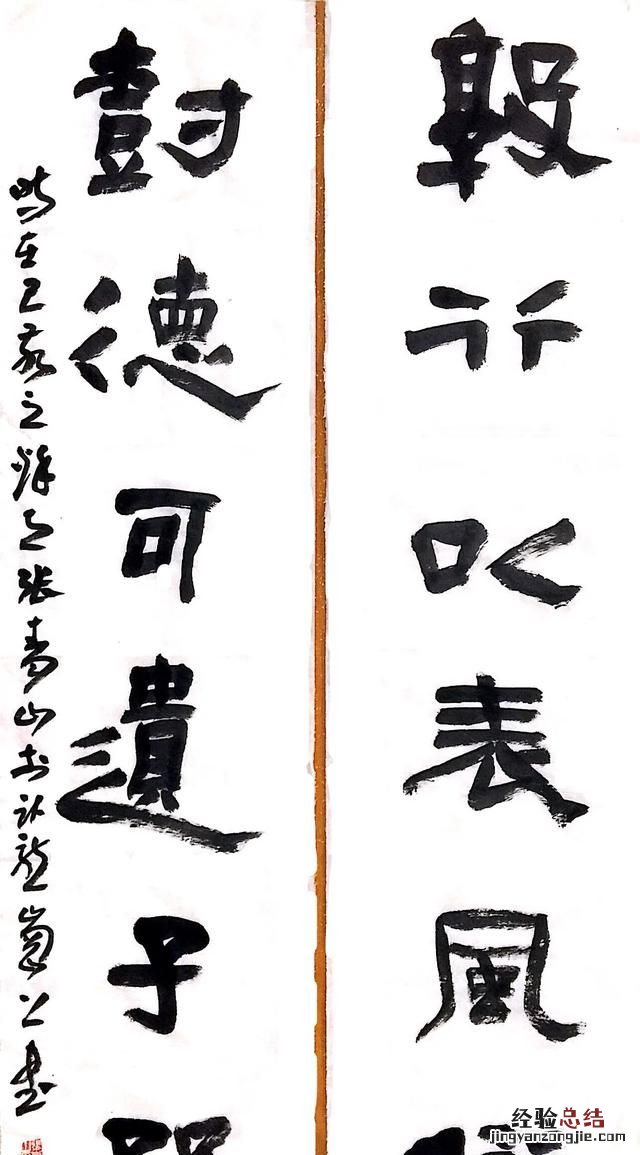 行以表風
尌德可遺子
時在己亥之 張青山於卧龍崗上書
经验总结
jingyanzongjie.com